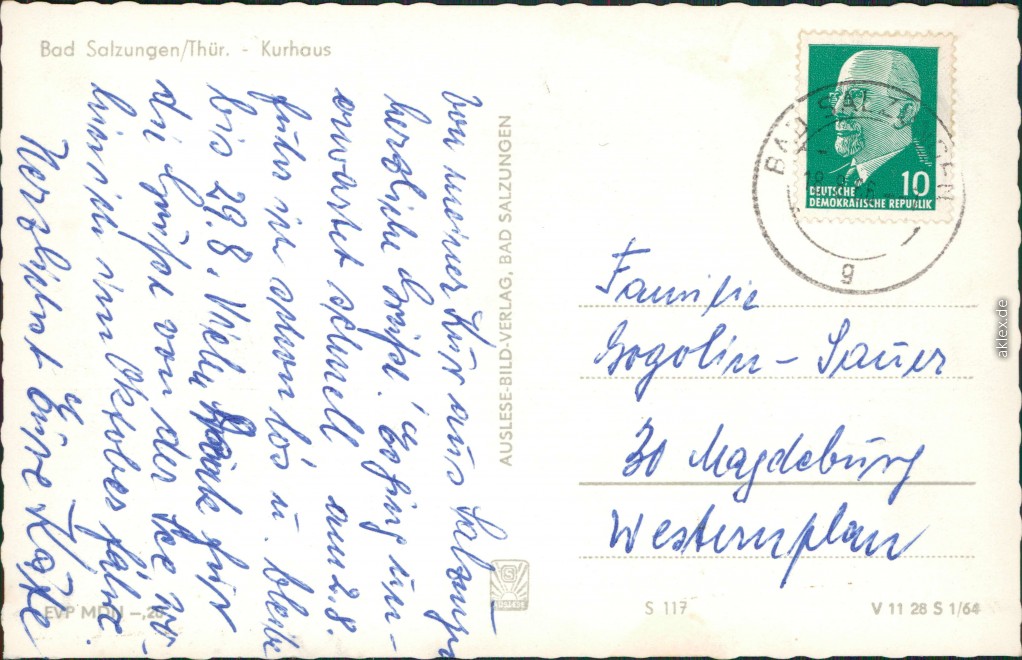 Bad Salzungen/Thür. - Kurhaus
Von meiner Kur aus Salzungen
herzliche Grüße! Es ging un-
erwartet schnell am 2.8.
fuhr ich schon los u. bleibe
bis 29.8. Vielen Dank für
die Grüße von der See wo-
hin ich im Oktober fahre.
Herzlichst Eure Käthe
AUSLESE-BILD-VERLAG, BAD SALZUNGEN
AUSLESE
EVP MDN -,20
BAD SALZUNGEN
g
DEUTSCHE
DEMOKRATISCHE REPUBLIK
10
Familie
Gogolin - Sauer
30 Magdeburg
Westernplan
S 117
V 11 28 S 1/64
aklex.de